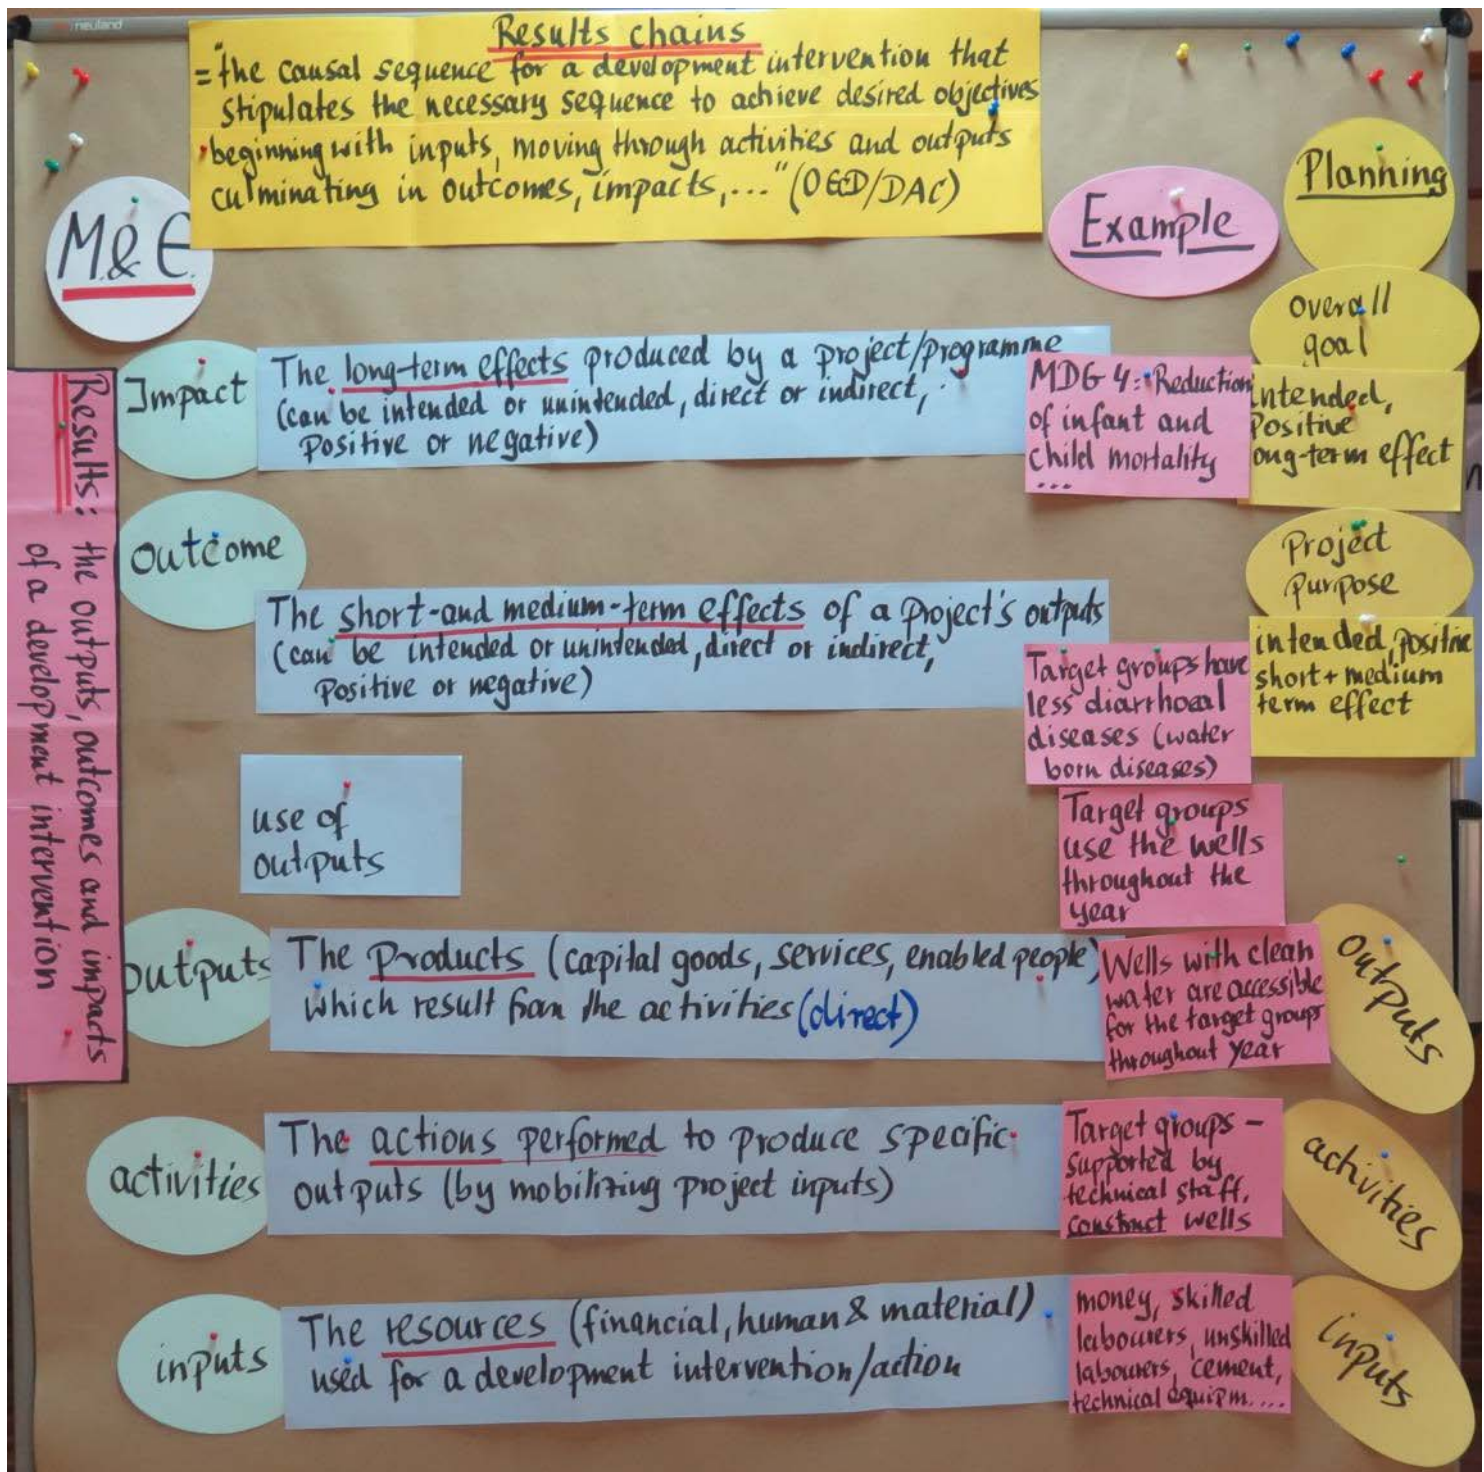 neuland
Results chains
= "the causal sequence for a development intervention that
stipulates the necessary sequence to achieve desired objectives
beginning with inputs, moving through activities and outputs
culminating in outcomes, impacts, ..." (OECD/DAC)
M & E
Example
Planning
Results: the outputs, outcomes and impacts
of a development intervention
Impact
The long-term effects produced by a project/programme
(can be intended or unintended, direct or indirect,
positive or negative)
MDG 4: Reduction
of infant and
child mortality
...
Overall
goal
intended,
positive
long-term effect
outcome
The short-and medium-term effects of a project's outputs
(can be intended or unintended, direct or indirect,
positive or negative)
Target groups have
less diarrhoeal
diseases (water
born diseases)
Project
purpose
intended, positive
short + medium
term effect
use of
outputs
Target groups
use the wells
throughout the
year
outputs
The Products (capital goods, services, enabled people)
which result from the activities (direct)
Wells with clean
water are accessible
for the target groups
throughout year
outputs
activities
The actions performed to produce specific
outputs (by mobilizing project inputs)
Target groups -
supported by
technical staff,
construct wells
activities
inputs
The resources (financial, human & material)
used for a development intervention/action
money, skilled
labourers, unskilled
labourers, cement,
technical equipm....
inputs